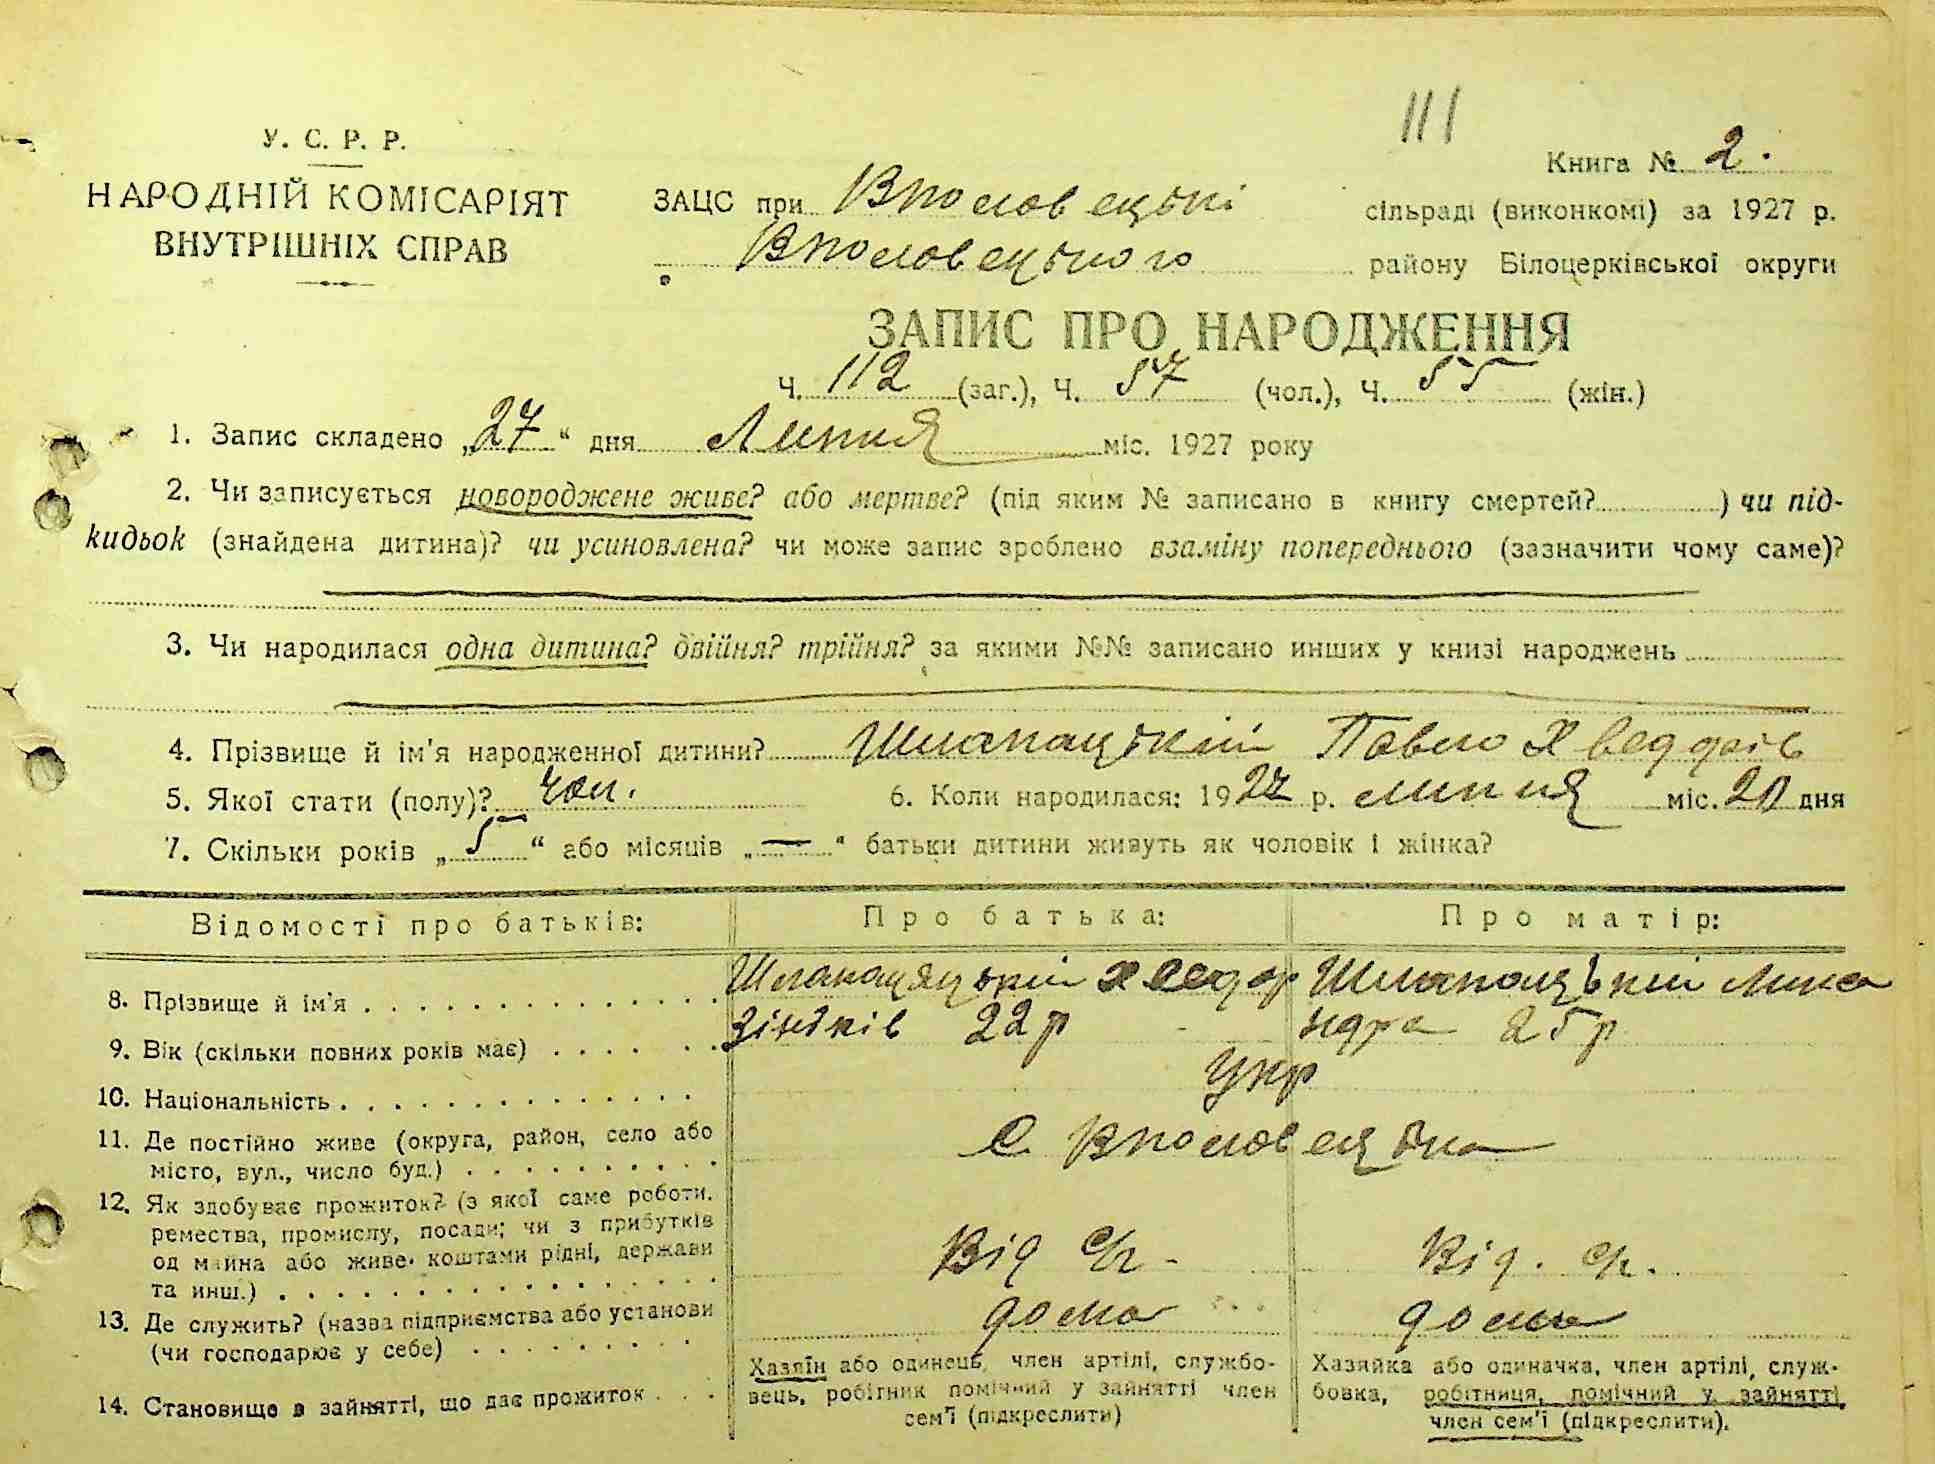 111
У. С. Р. Р.
НАРОДНІЙ КОМІСАРІЯТ
ВНУТРІШНІХ СПРАВ
Книга № 2.
ЗАЦС при сільраді (виконкомі) за 1927 р.
району Білоцерківської округи
ЗАПИС ПРО НАРОДЖЕННЯ
Ч. 112 (заг.), Ч. 57 (чол.), Ч. 55 (жін.)
1. Запис складено „27“ дня Липня міс. 1927 року
2. Чи записується новороджене живе? або мертве? (під яким № записано в книгу смертей? ) чи під-
кидьок (знайдена дитина)? чи усиновлена? чи може запис зроблено взаміну попереднього (зазначити чому саме)?
3. Чи народилася одна дитина? двійня? трійня? за якими №№ записано инших у книзі народжень
4. Прізвище й ім'я народженної дитини? Шлапацький Павло Хведорів
5. Якої стати (полу)? чол. 6. Коли народилася: 1927 р. липня міс. 20 дня
7. Скільки років „5“ або місяців „—“ батьки дитини живуть як чоловік і жінка?
Відомості про батьків: Про батька: Про матір:
8. Прізвище й ім'я Хведор
9. Вік (скільки повних років має) 22 р 25 р
10. Національність Укр
11. Де постійно живе (округа, район, село або
місто, вул., число буд.) с.
12. Як здобуває прожиток? (з якої саме роботи,
ремества, промислу, посади; чи з прибутків
од майна або живе коштами рідні, держави
та инш.) Від с/г. Від. с/г.
13. Де служить? (назва підприємства або установи
(чи господарює у себе) дома дома
14. Становище в зайнятті, що дає прожиток
Хазяїн або одинець, член артілі, службо-
вець, робітник помічний у зайнятті член
сем'ї (підкреслити)
Хазяйка або одиначка, член артілі, служ-
бовка, робітниця, помічний у зайнятті
член сем'ї (підкреслити).